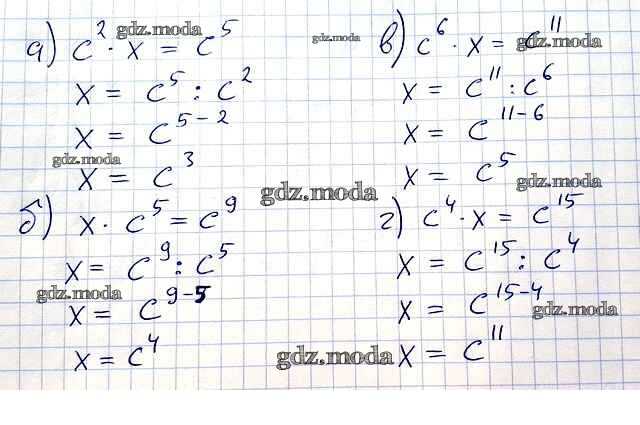 а) c² · x = c⁵
x = c⁵ : c²
x = c⁵⁻²
x = c³
б) x · c⁵ = c⁹
x = c⁹ : c⁵
x = c⁹⁻⁵
x = c⁴
в) c⁶ · x = c¹¹
x = c¹¹ : c⁶
x = c¹¹⁻⁶
x = c⁵
г) c⁴ · x = c¹⁵
x = c¹⁵ : c⁴
x = c¹⁵⁻⁴
x = c¹¹
gdz.moda
gdz.moda
gdz.moda
gdz.moda
gdz.moda
gdz.moda
gdz.moda
gdz.moda
gdz.moda